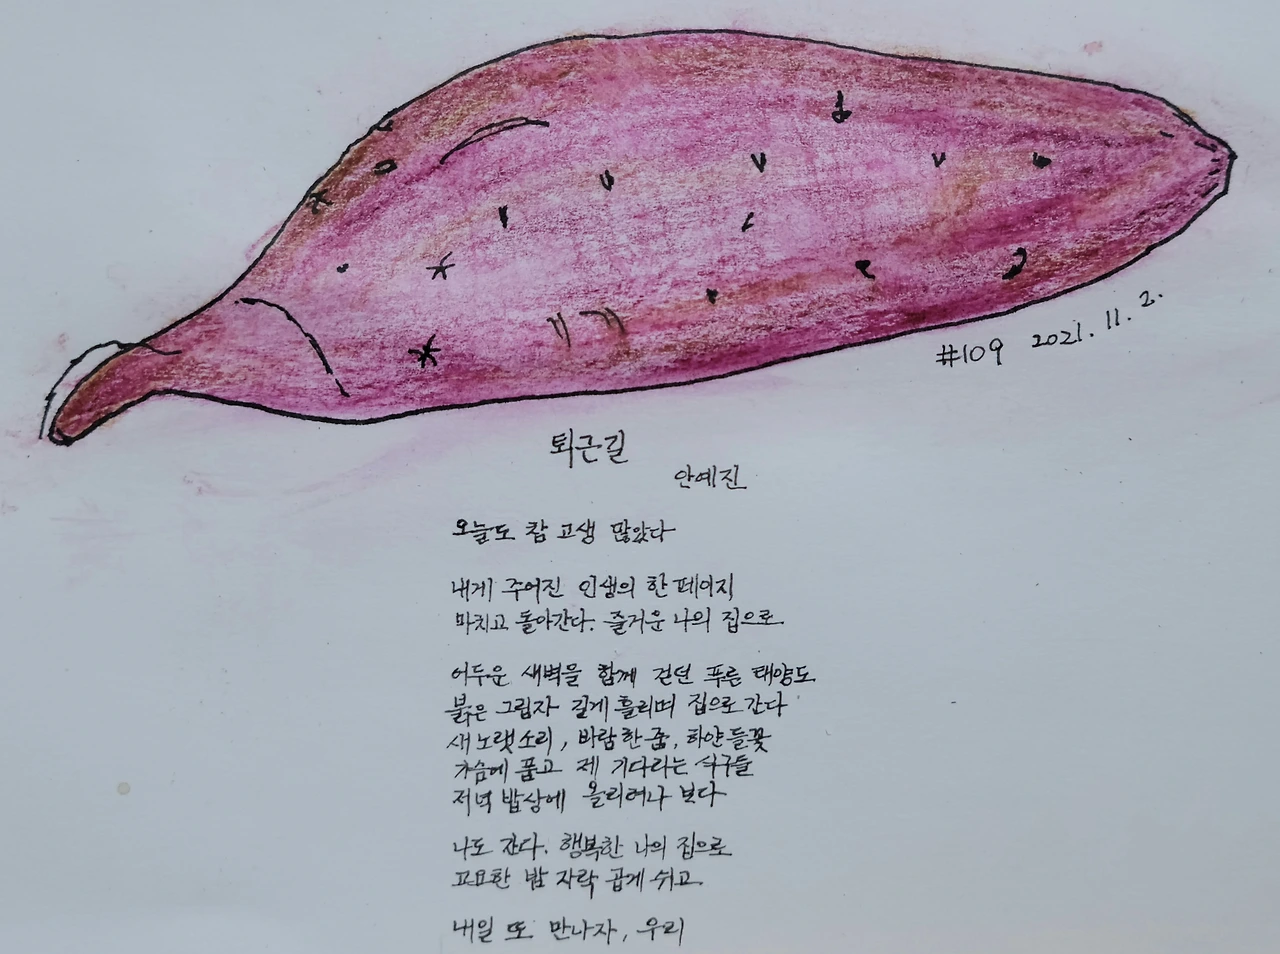 #109 2021. 11. 2.
퇴근길
안예진
오늘도 참 고생 많았다
내게 주어진 인생의 한 페이지
마치고 돌아간다. 즐거운 나의 집으로
어두운 새벽을 함께 걷던 푸른 태양도
붉은 그림자 길게 흘리며 집으로 간다
새 노랫소리, 바람 한 줌, 하얀 들꽃
가슴에 품고 제 기다리는 식구들
저녁 밥상에 올리려나 보다
나도 간다. 행복한 나의 집으로
고요한 밤 자락 곱게 쉬고.
내일 또 만나자, 우리